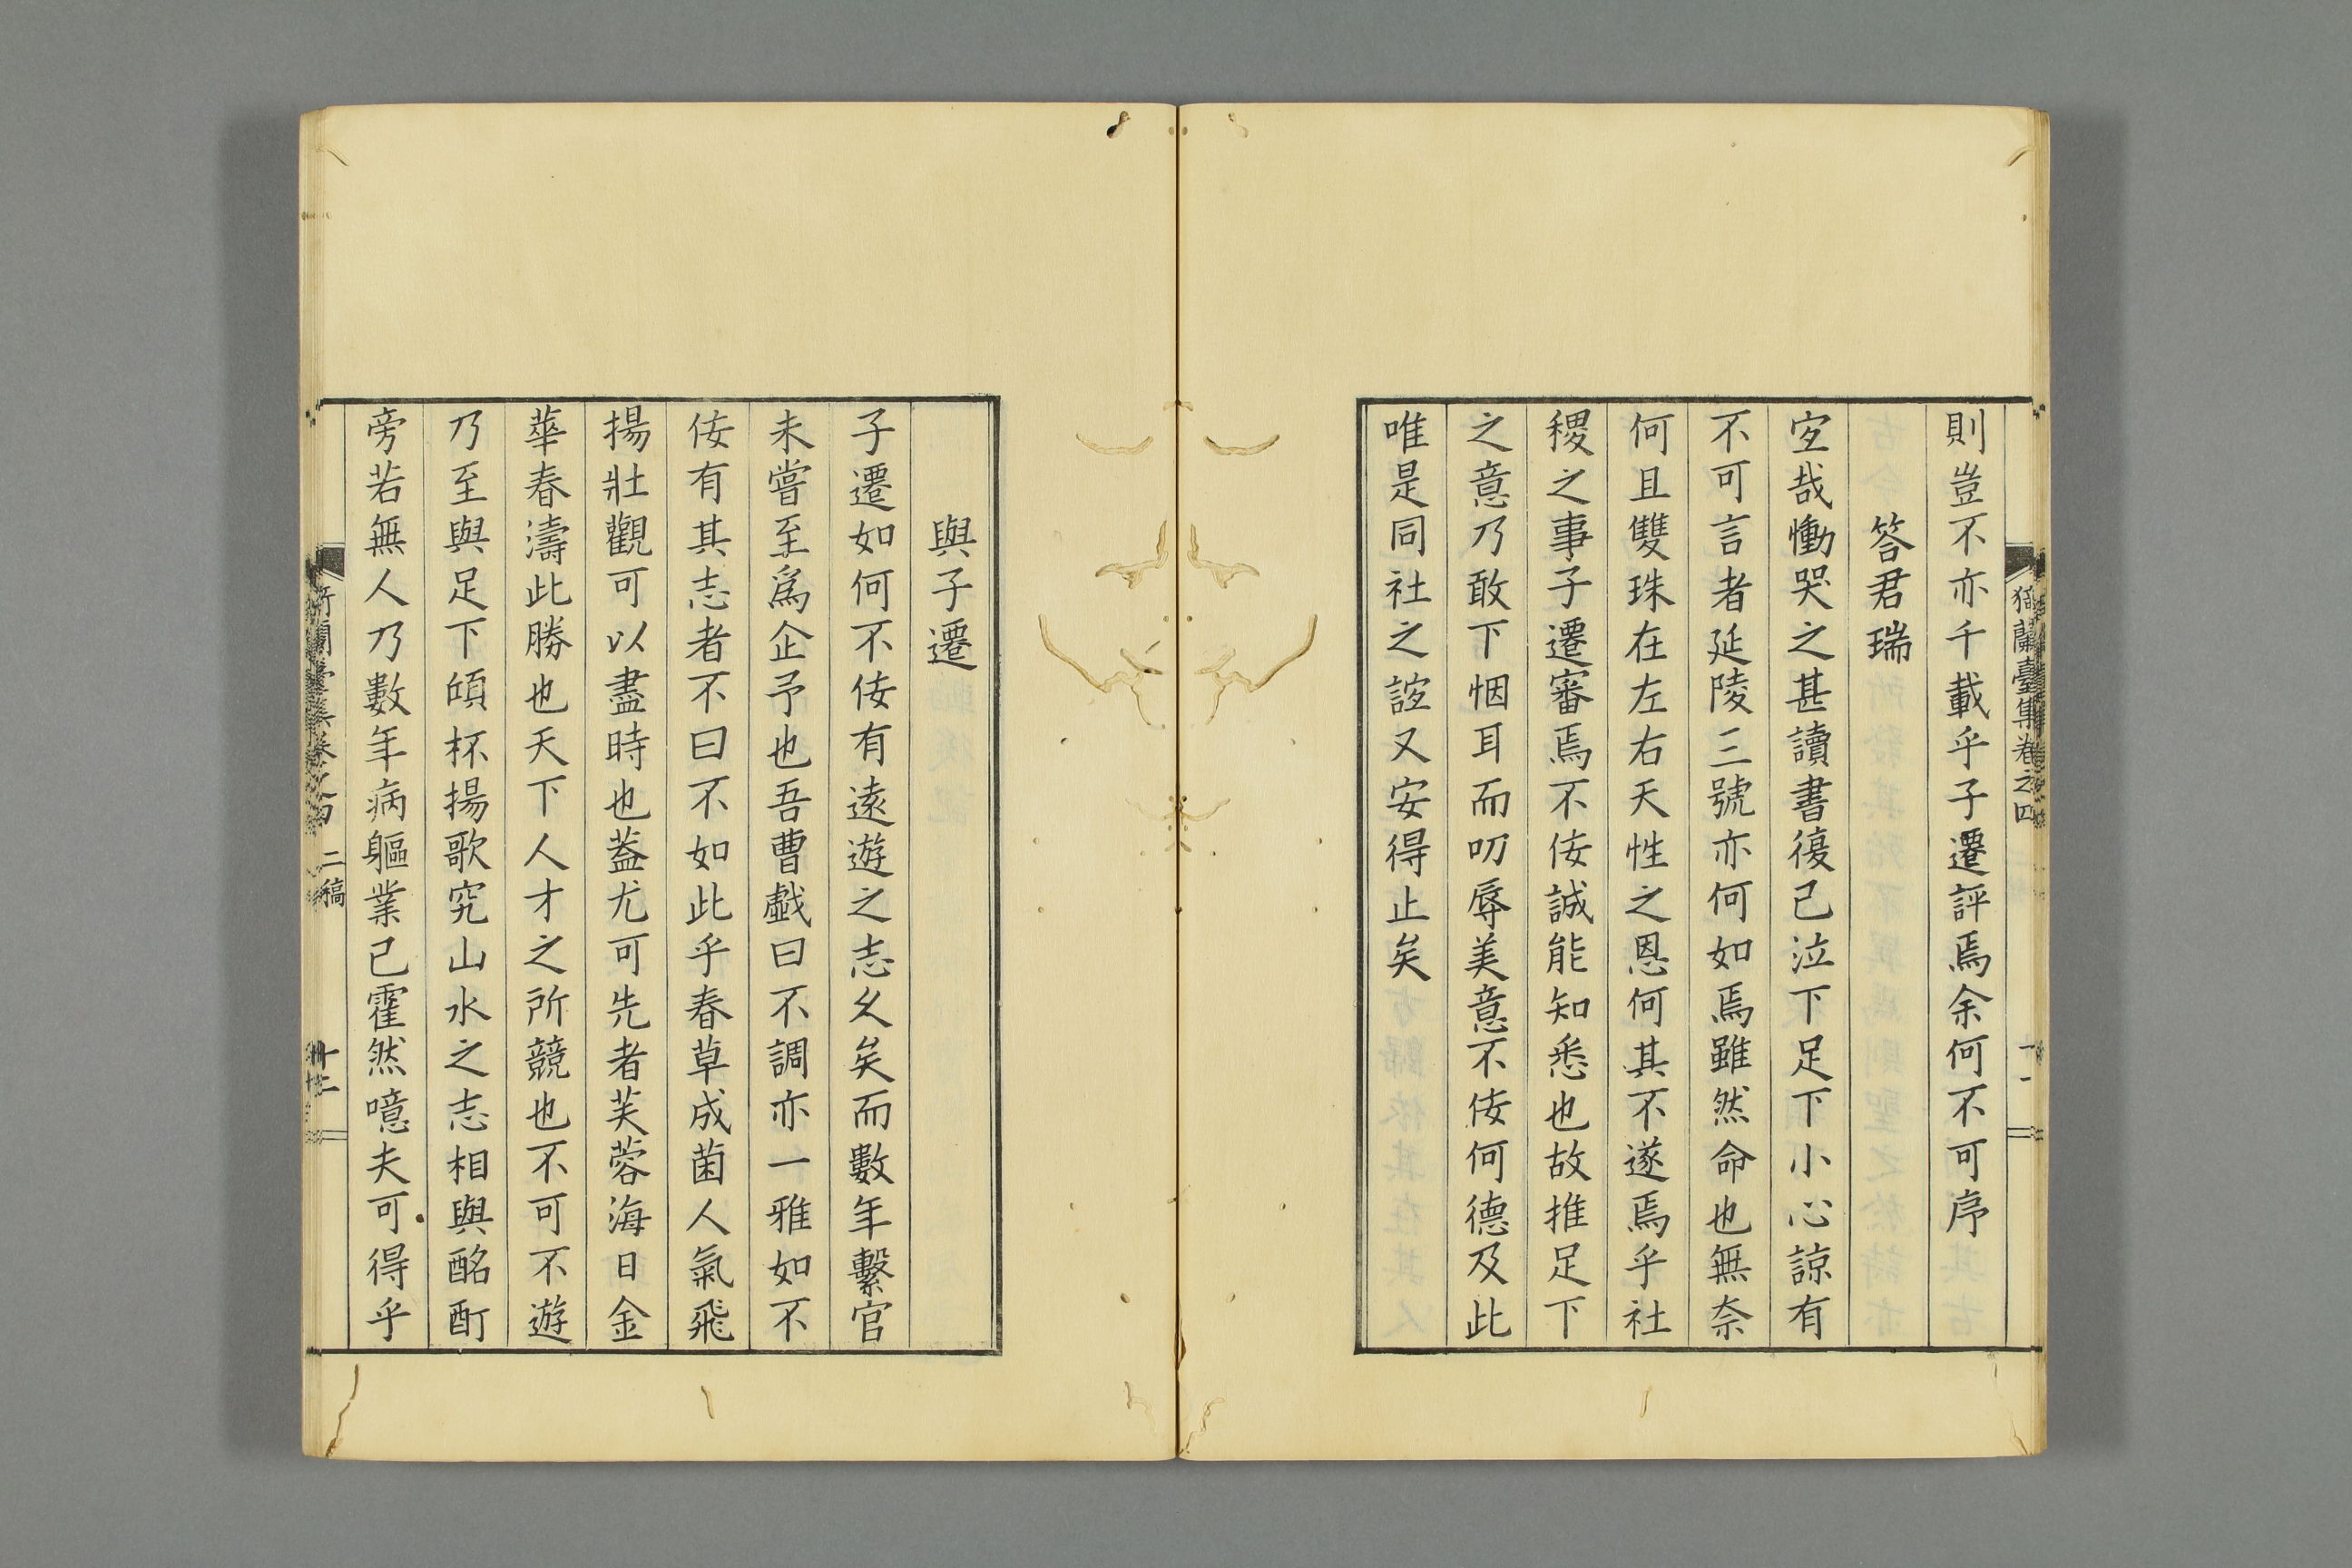 猗蘭臺集卷之四
十一
則豈不亦千載乎子遷評焉余何不可序
答君瑞
宐哉慟哭之甚讀書復已泣下足下小心諒有
不可言者延陵三號亦何如焉雖然命也無奈
何且雙珠在左右天性之恩何其不遂焉乎社
稷之事子遷審焉不佞誠能知悉也故推足下
之意乃敢下悃耳而叨辱美意不佞何德及此
唯是同社之誼又安得止矣
與子遷
子遷如何不佞有遠遊之志久矣而數年繫官
未嘗至爲企予也吾曹戲曰不調亦一雅如不
佞有其志者不曰不如此乎春草成茵人氣飛
揚壯觀可以盡時也蓋尤可先者芙蓉海日金
華春濤此勝也天下人才之所競也不可不遊
乃至與足下傾杯揚歌究山水之志相與酩酊
旁若無人乃數年病軀業已霍然噫夫可得乎
二稿
十二